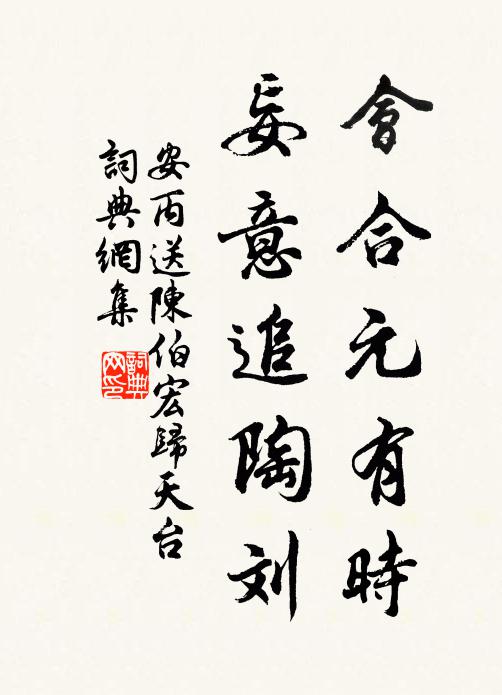 會合元有時
妄意追陶刘
安丙送陳伯宏歸天台
詞典網集
詞典网印